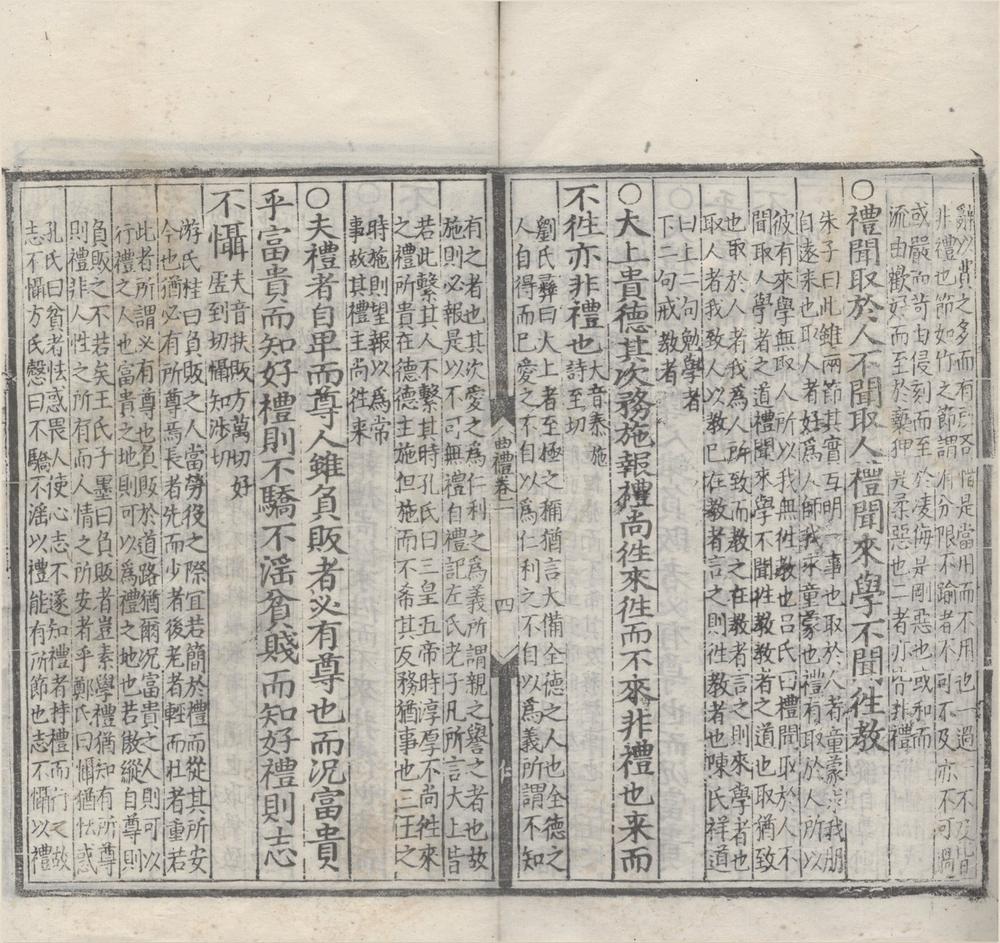 辭以費之多而有是當用而不用也一過一不及皆
非禮也節如竹之節謂有分限不踰者不可不及亦不可過
或嚴而苛由侵刻而至於凌侮是剛惡也或和而
流由歡好而至於褻狎是柔惡也二者亦皆非禮
○禮聞取於人不聞取人禮聞來學不聞徃教
朱子曰此雖兩節其實互明一事也取於人者童蒙求我朋
自遠來也取人者好為人師我求童蒙也禮有取於人所以
彼有來學無取人所以我無徃教也呂氏曰禮聞取於人不
聞取人學者之道禮聞來學不聞徃教教者之道也取猶致
也取於人者我為人所致而教之在教者言之則來學者也
取人者我致人以教已在教者言之則徃教者也陳氏祥道
曰上二句勉學者
下二句戒教者
○大上貴德其次務施報禮尚徃來徃而不來非禮也来而
不徃亦非禮也
大音泰施
詩至切
劉氏彞曰大上者至極之稱猶言大備全德之人也全德之
人自得而已愛之不自以爲仁利之不自以爲義所謂不知
曲禮卷一
四
仁
有之者也其次愛之爲仁利之爲義所謂親之譽之者也故
施則必報是以不可無禮自禮記左氏老子凡所言大上皆
若此繫其人不繫其時孔氏曰三皇五帝時淳厚不尚徃來
之禮所貴在德德主施但施而不希其反務猶事也三王之
時施則望報以爲常
事故其禮主尚徃來
○夫禮者自卑而尊人雖負販者必有尊也而況富貴
乎富貴而知好禮則不驕不滛貧賤而知好禮則志
不懾
夫音扶販方萬切好
虛到切懾知涉切
游氏桂曰負販之人當勞役之際宜若簡於禮而從其所安
今也猶必有所尊焉長者先而少者後老者輕而壯者重若
此者所謂必有尊也負販於道路猶爾況富貴之人則可以
行禮之人也富貴之地則可以爲禮之地也若傲縱自尊則
負販之不若矣王氏子墨曰負販者豈素學禮猶知有所尊
則禮非人性之所有而人情之所安者乎鄭氏曰懾猶怯惑
孔氏曰貧者怯惑畏人使心志不遂知禮者持禮而行之故
志不懾方氏慤曰不驕不滛以禮能有所節也志不懾以禮